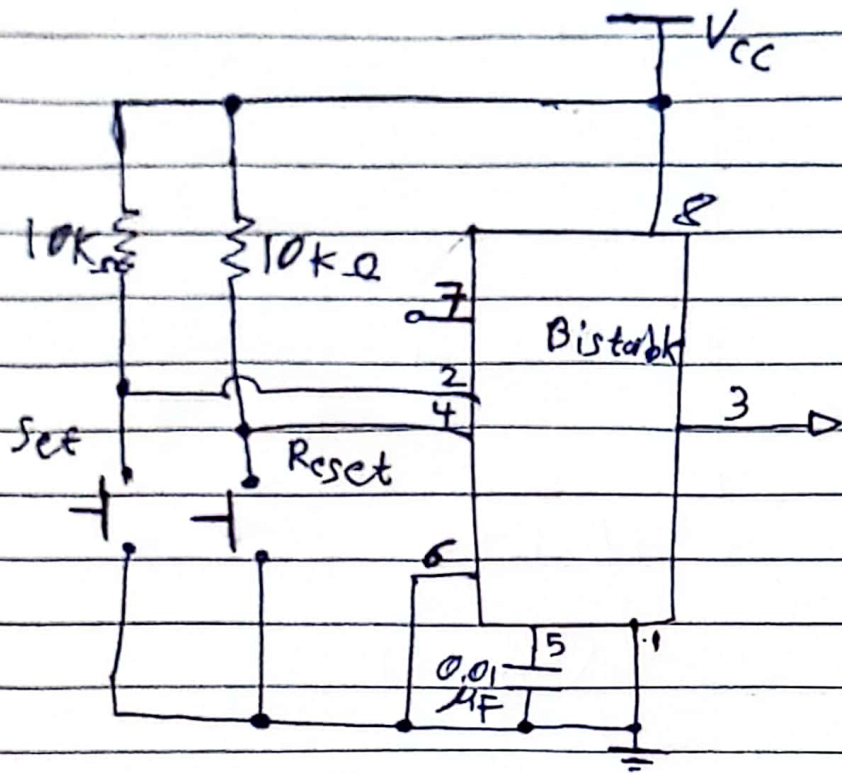 Vcc
8
10KΩ
10KΩ
7
Bistable
2
4
3
Set
Reset
6
5
1
0.01
μF